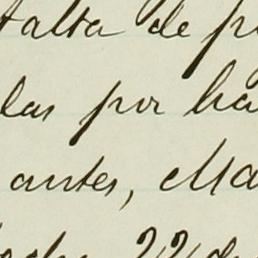 falta de p
las por ha
antes, Ma
22 de